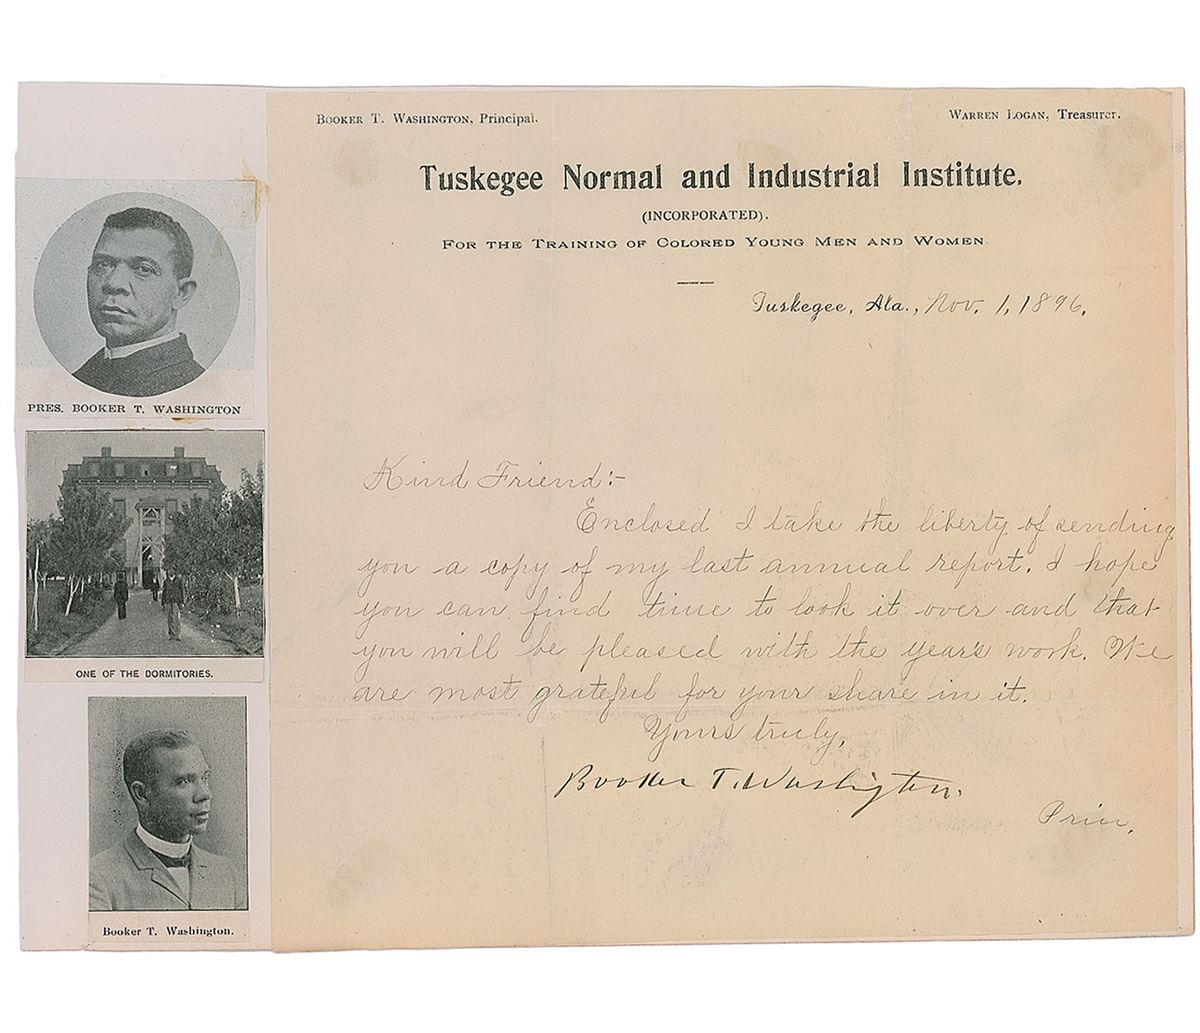 BOOKER T. WASHINGTON, Principal.
WARREN LOGAN, Treasurer.
Tuskegee Normal and Industrial Institute.
(INCORPORATED).
FOR THE TRAINING OF COLORED YOUNG MEN AND WOMEN
Tuskegee, Ala., Nov. 1, 1896,
Kind Friend:-
Enclosed I take the liberty of sending
you a copy of my last annual report. I hope
you can find time to look it over and that
you will be pleased with the years work. We
are most grateful for your share in it.
Yours truly,
Booker T. Washington.
Prin,
PRES. BOOKER T. WASHINGTON
ONE OF THE DORMITORIES.
Booker T. Washington.